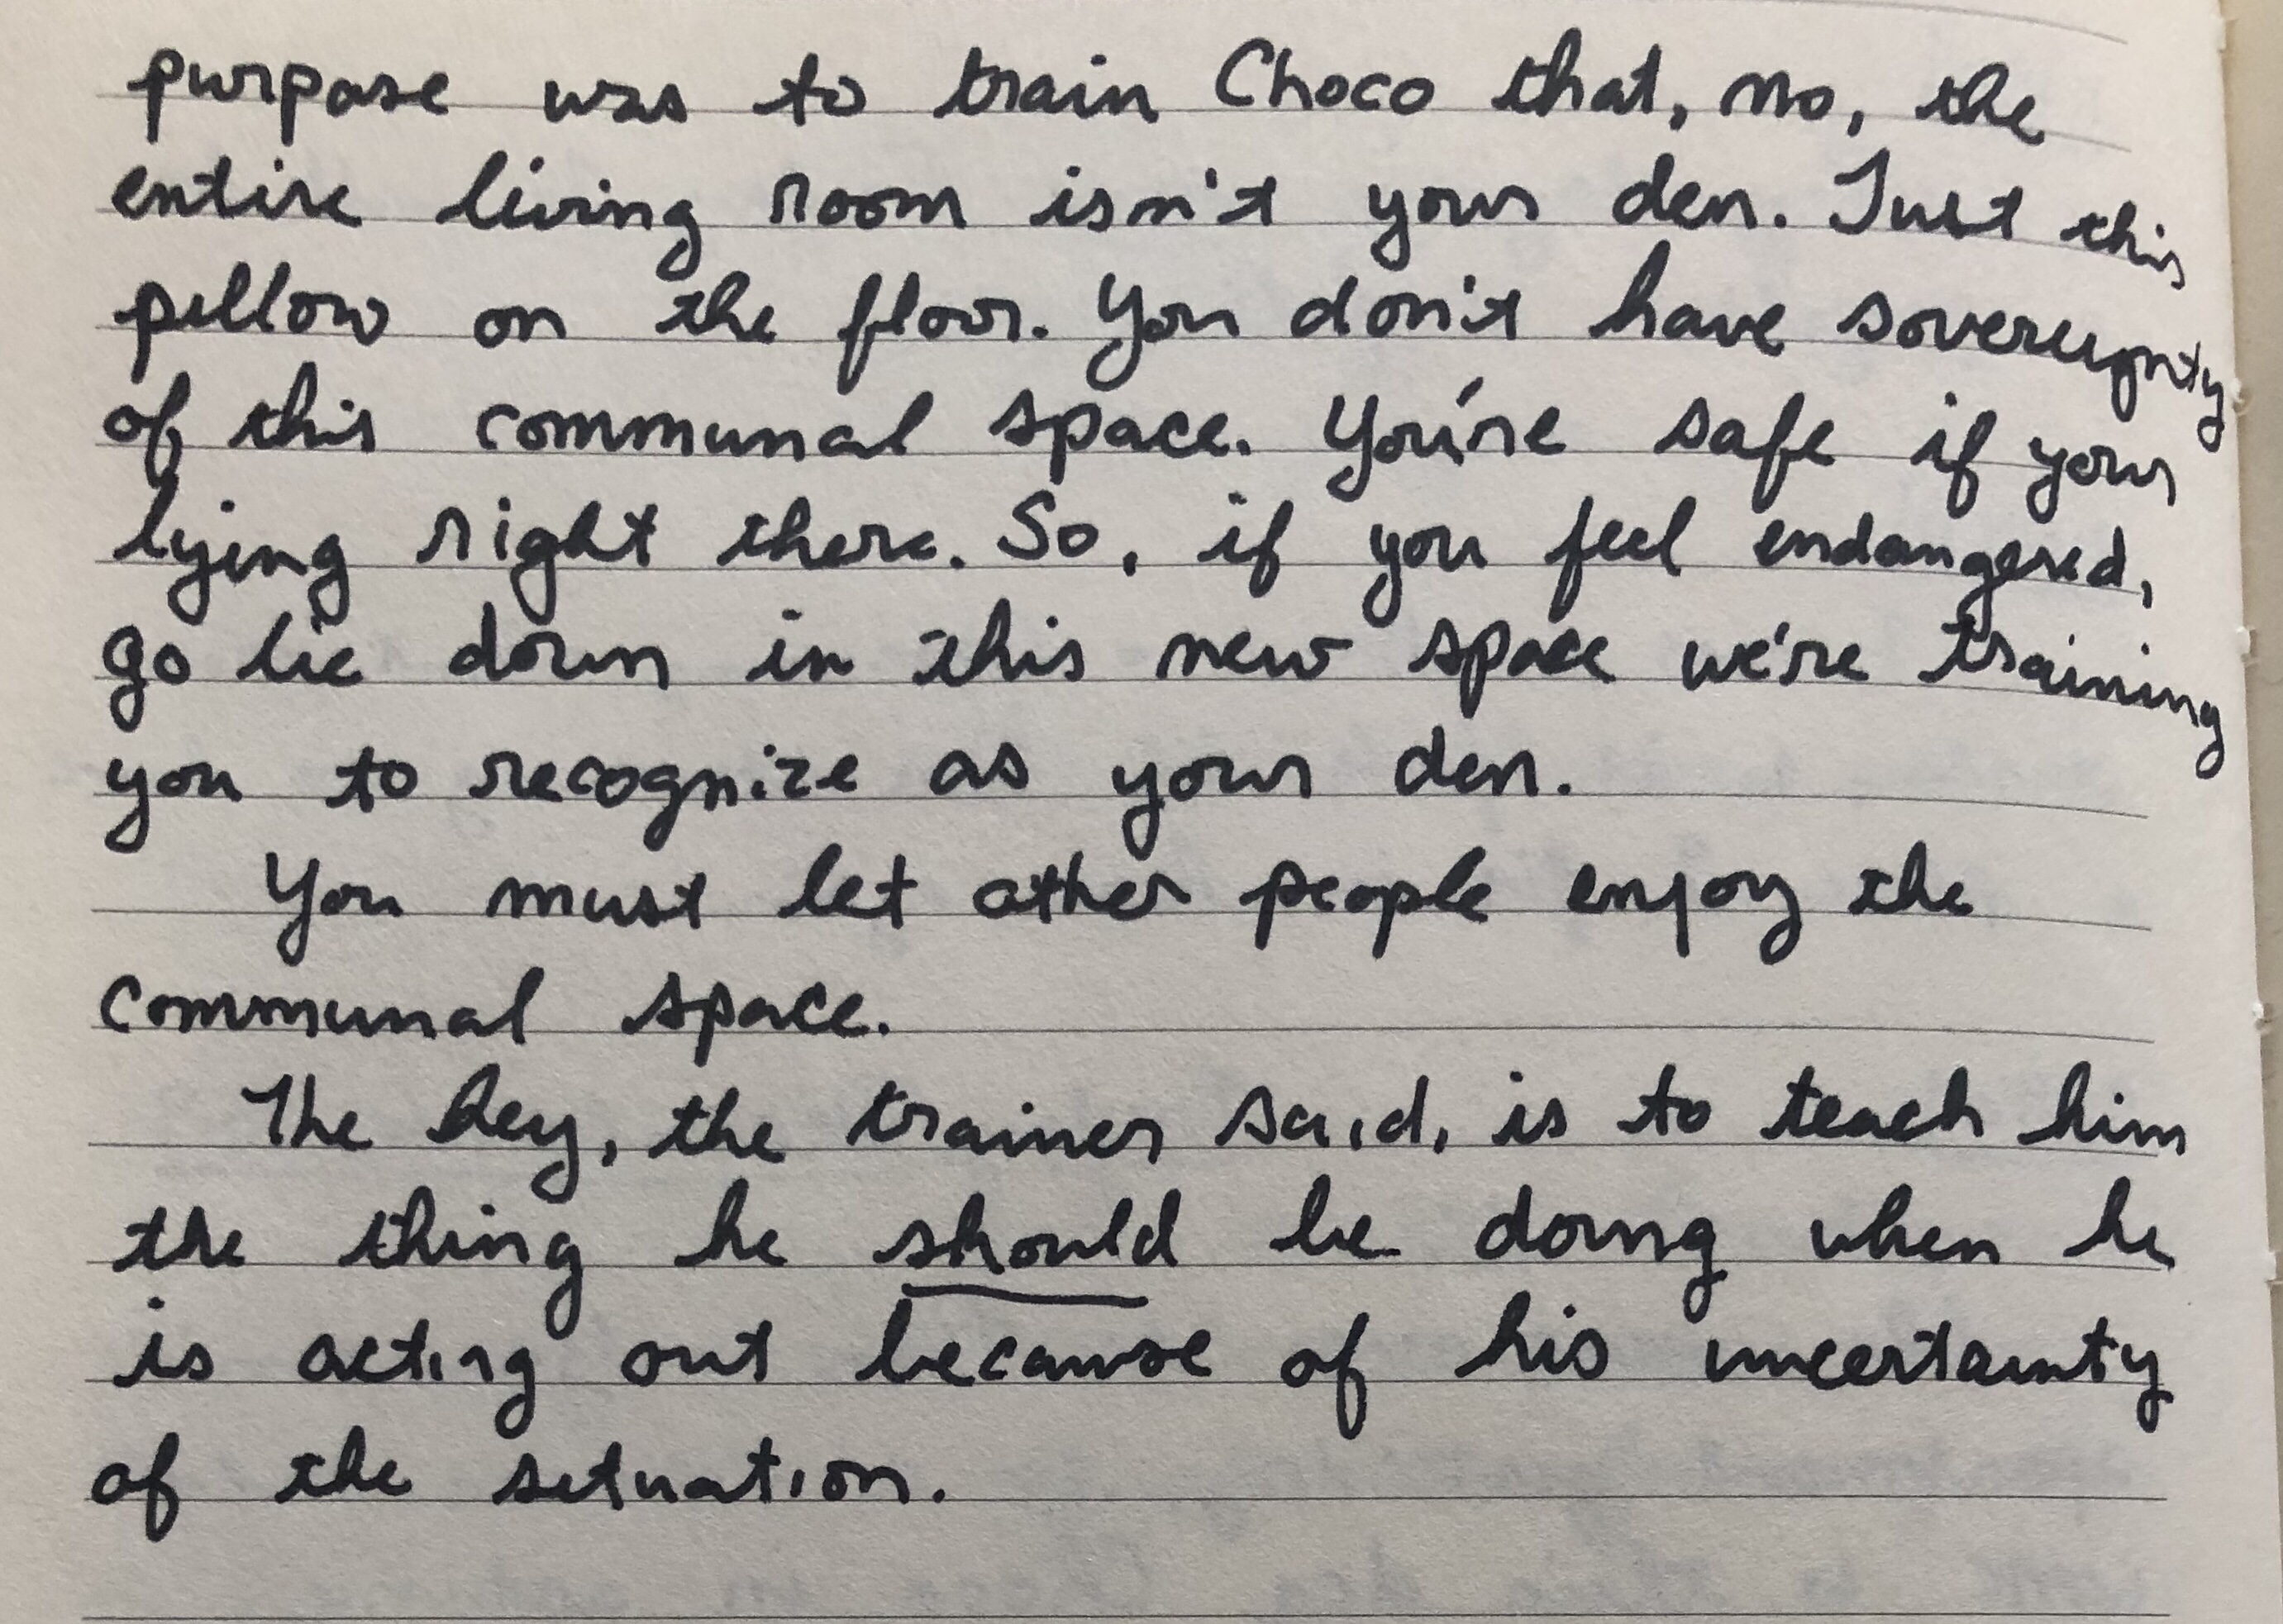 purpose was to train Choco that, no, the
entire living room isn't your den. Just this
pillow on the floor. You don't have sovereignty
of this communal space. You're safe if your
lying right there. So, if you feel endangered,
go lie down in this new space we're training
you to recognize as your den.
You must let other people enjoy the
communal space.
The key, the trainer said, is to teach him
the thing he should be doing when he
is acting out because of his uncertainty
of the situation.